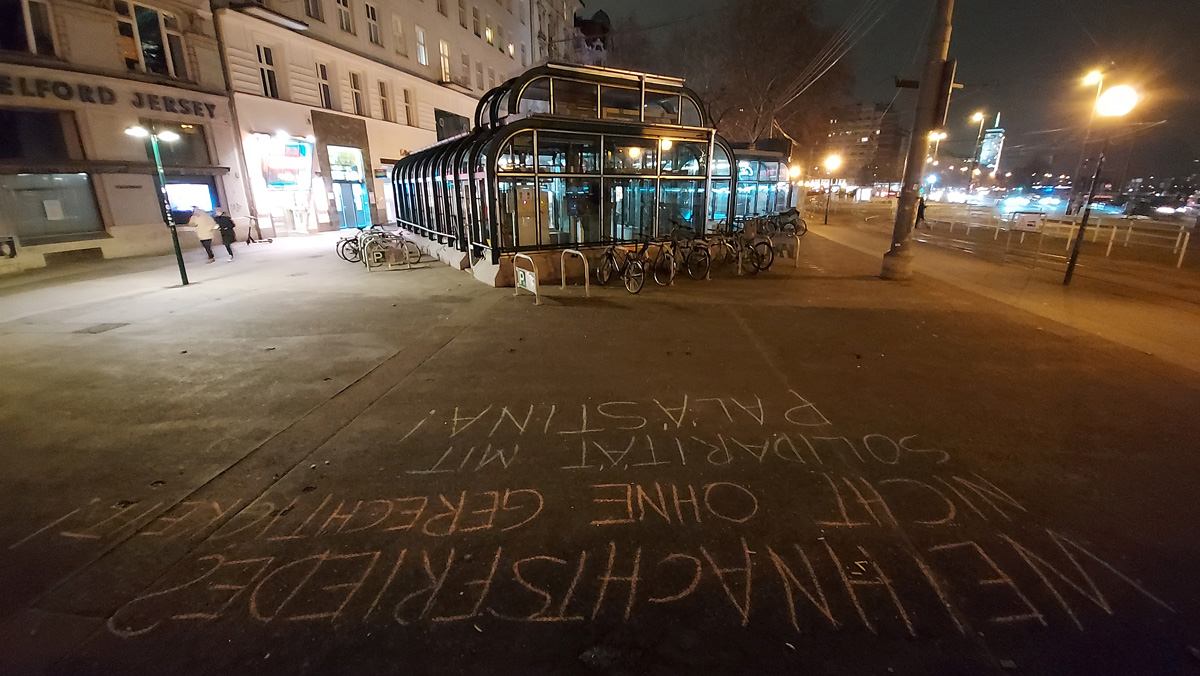 ELFORD JERSEY
WEIHNACHTSFRIEDE?
NICHT OHNE GERECHTIGKEIT!
SOLIDARITÄT MIT
PALÄSTINA!
P
P